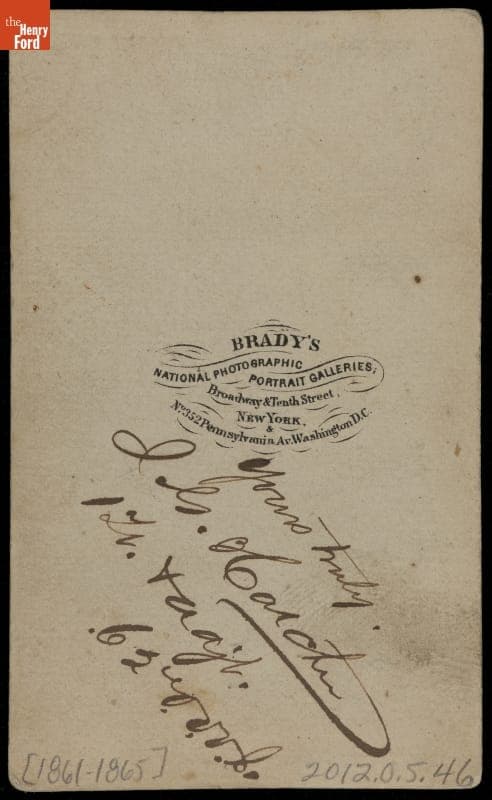 the
Henry
Ford
BRADY'S
NATIONAL PHOTOGRAPHIC
PORTRAIT GALLERIES,
Broadway & Tenth Street,
NEW YORK,
&
No. 352 Pennsylvania Av. Washington D.C.
Yours truly.
J. G.
Lt. & Adjt.
62
[1861-1865]
2012.0.5.46